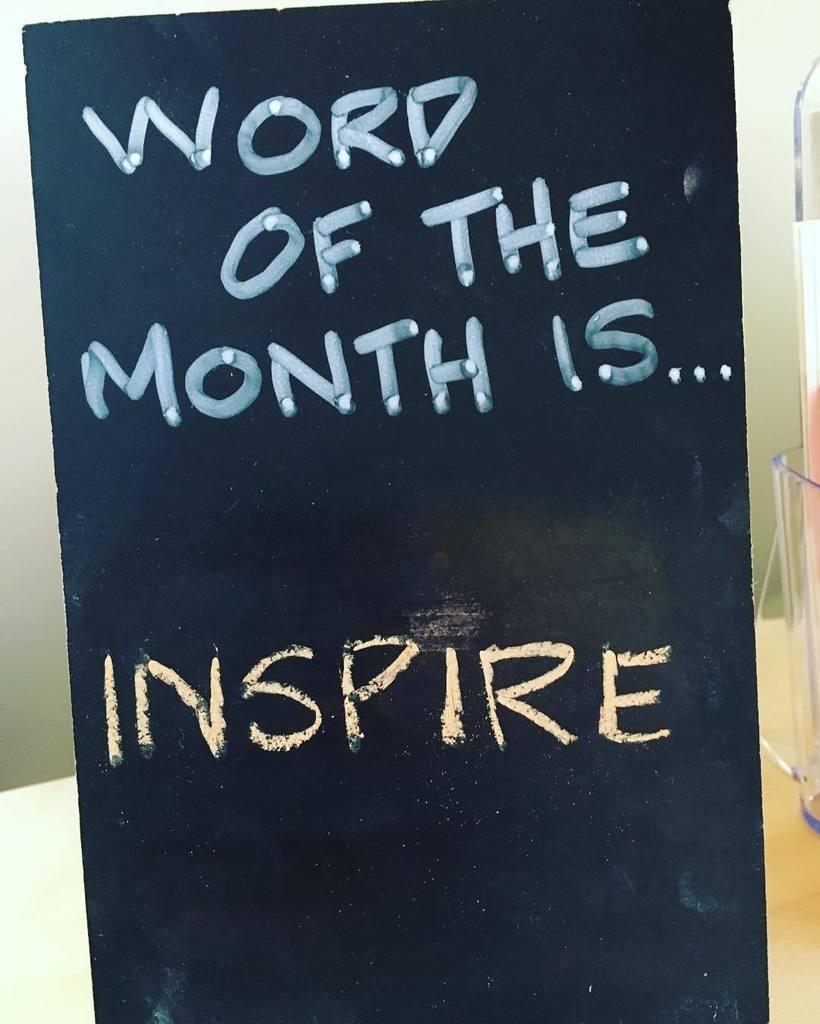 WORD
OF THE
MONTH IS...
INSPIRE